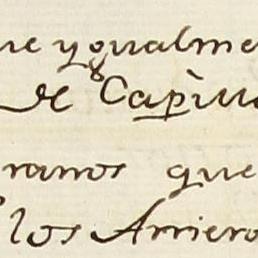 ue ygualme
de Capìtu
ranos que
los Arriero